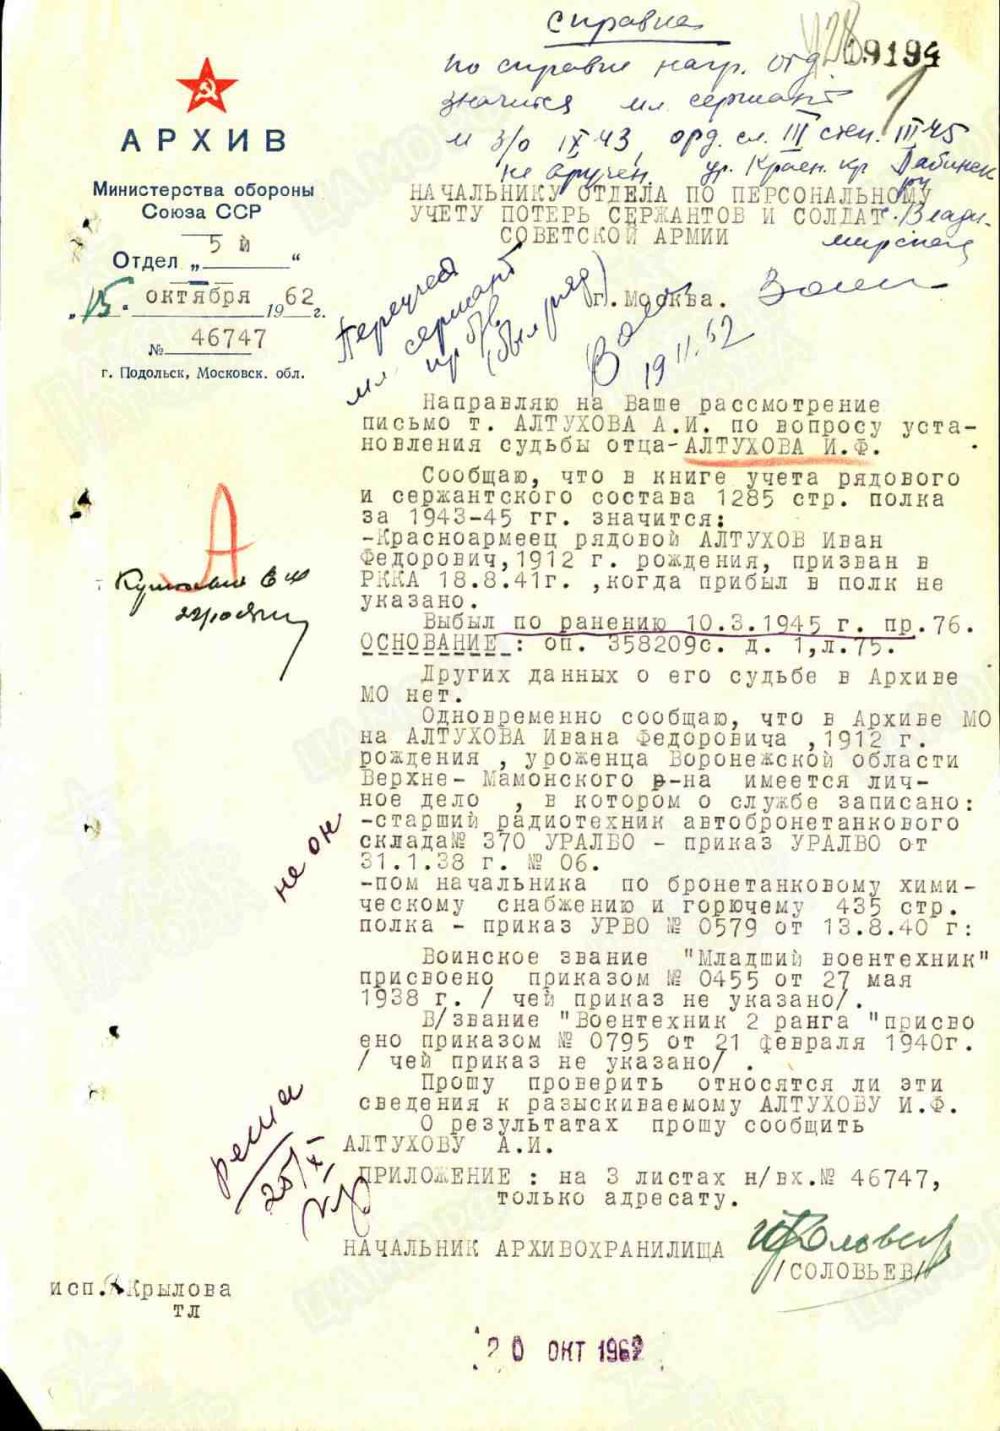 справка
по справке нагр. отд.
значится мл. сержант
м з/о IX 43, орд. сл. III степ. III 45
не вручен. ур. Красн. кр Лабинск
р-н
Влади-
мирская
19194
АРХИВ
Министерства обороны
Союза ССР
Отдел „ 5 й “
„15. октября 1962 г.
№ 46747
г. Подольск, Московск. обл.
НАЧАЛЬНИКУ ОТДЕЛА ПО ПЕРСОНАЛЬНОМУ
УЧЕТУ ПОТЕРЬ СЕРЖАНТОВ И СОЛДАТ
СОВЕТСКОЙ АРМИИ
г. Москва.
мл. сержант
(был ряд)
19 11.62
Направляю на Ваше рассмотрение
письмо т. АЛТУХОВА А.И. по вопросу уста-
новления судьбы отца-АЛТУХОВА И.Ф.
Сообщаю, что в книге учета рядового
и сержантского состава 1285 стр. полка
за 1943-45 гг. значится:
-Красноармеец рядовой АЛТУХОВ Иван
Федорович,1912 г. рождения, призван в
РККА 18.8.41г. ,когда прибыл в полк не
указано.
Выбыл по ранению 10.3.1945 г. пр.76.
ОСНОВАНИЕ : оп. 358209с. д. 1,л.75.
Других данных о его судьбе в Архиве
МО нет.
Одновременно сообщаю, что в Архиве МО
на АЛТУХОВА Ивана Федоровича ,1912 г.
рождения , уроженца Воронежской области
Верхне- Мамонского р-на имеется лич-
ное дело , в котором о службе записано:
-старший радиотехник автобронетанкового
склада№ 370 УРАЛВО - приказ УРАЛВО от
31.1.38 г. № 06.
-пом начальника по бронетанковому хими-
ческому снабжению и горючему 435 стр.
полка - приказ УРВО № 0579 от 13.8.40 г:
Воинское звание "Младший воентехник"
присвоено приказом № 0455 от 27 мая
1938 г. / чей приказ не указано/.
В/звание "Воентехник 2 ранга "присво
ено приказом № 0795 от 21 февраля 1940г.
/ чей приказ не указано/ .
Прошу проверить относятся ли эти
сведения к разыскиваемому АЛТУХОВУ И.Ф.
О результатах прошу сообщить
АЛТУХОВУ А.И.
ПРИЛОЖЕНИЕ : на 3 листах н/вх.№ 46747,
только адресату.
НАЧАЛЬНИК АРХИВОХРАНИЛИЩА
/СОЛОВЬЕВ/
А
не он
25/X
исп. Крылова
тл
20 ОКТ 1962